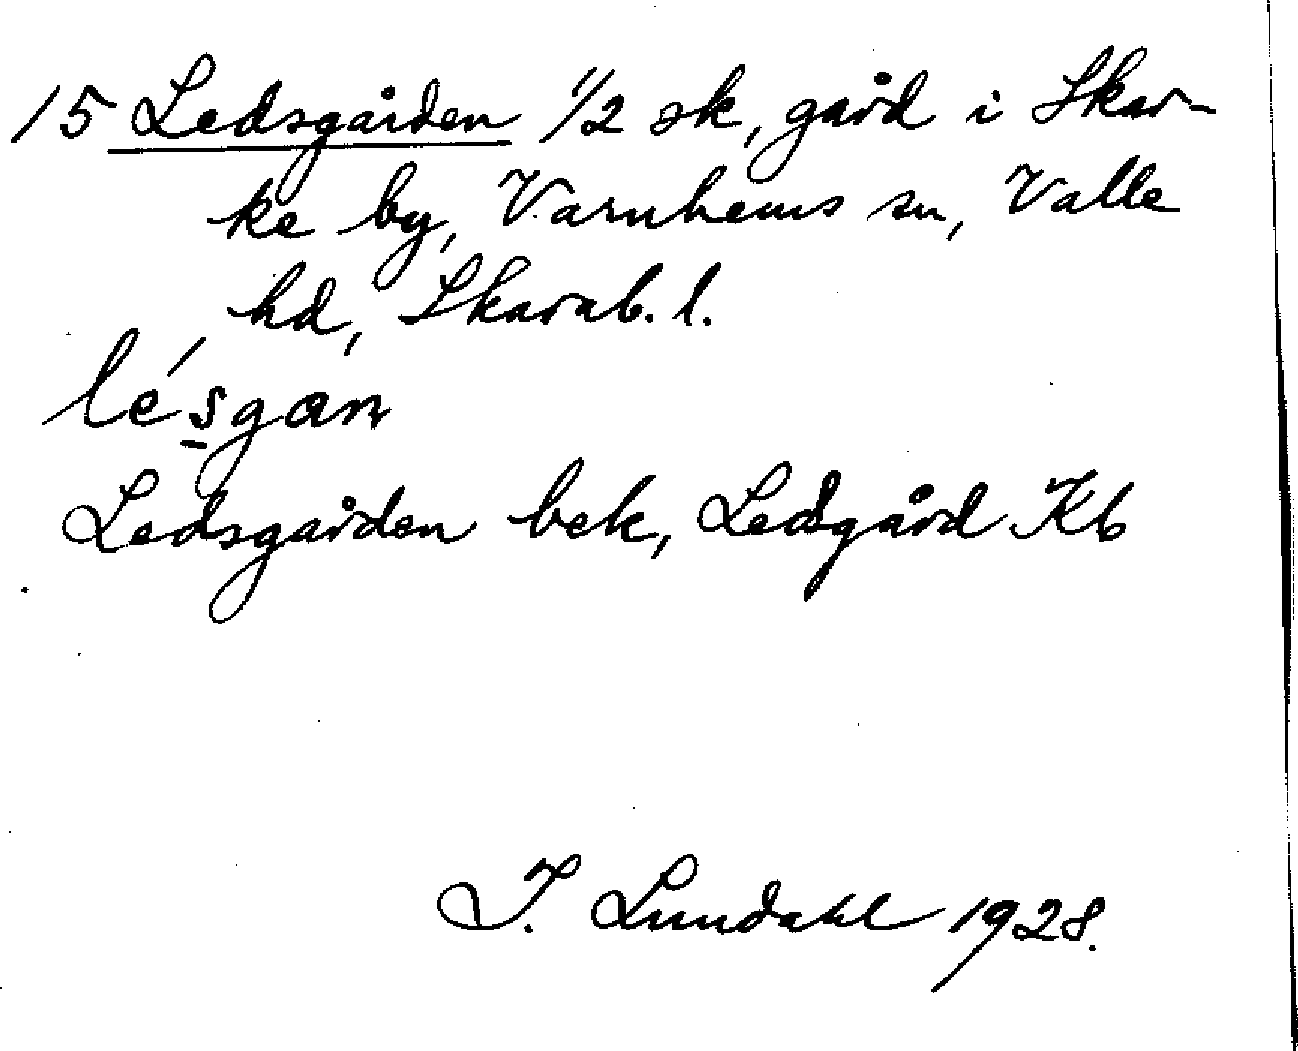 15 Ledsgården 1/2 sk, gård i Skar-
ke by, Varnhems sn, Valle
hd, Skarab. l.
lésgan
Ledsgården bek, Ledsgård Kb
I. Lundahl 1928.